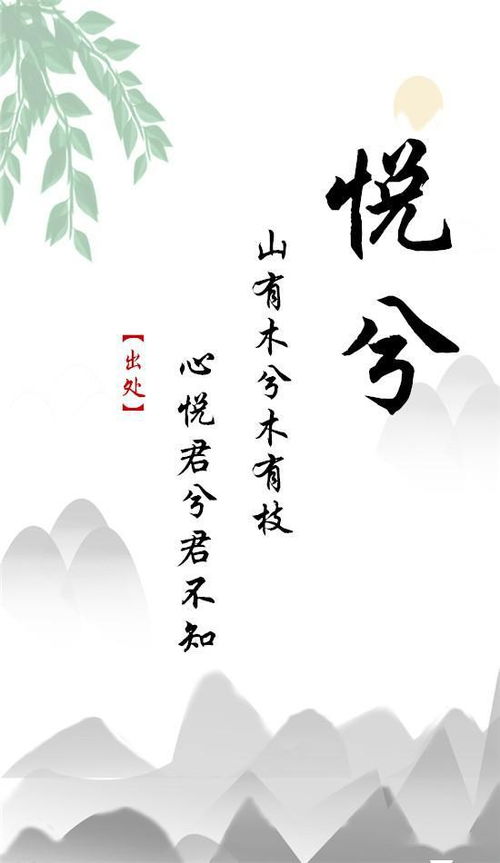 悦兮
山有木兮木有枝
心悦君兮君不知
【出处】